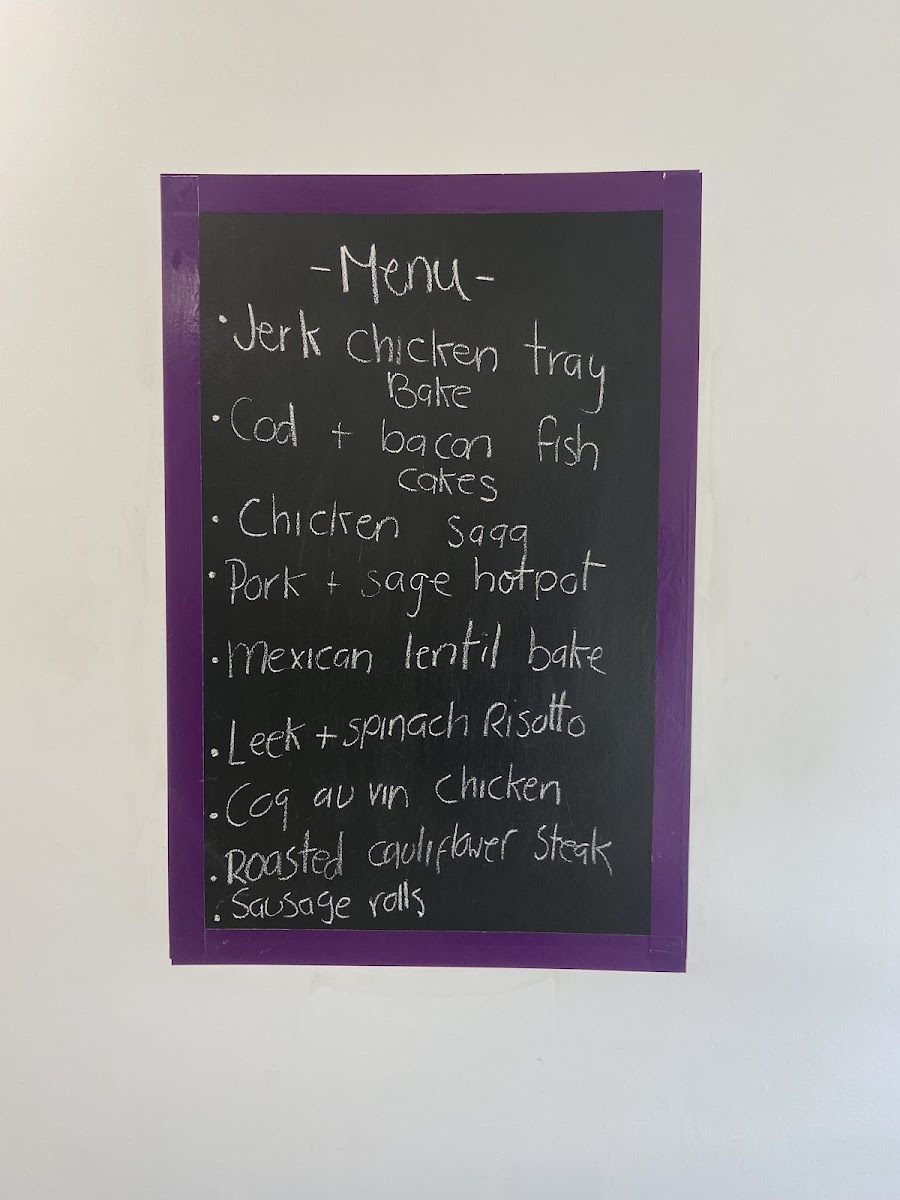 -Menu-
• Jerk chicken tray
Bake
• Cod + bacon fish
cakes
• Chicken Saag
• Pork + sage hotpot
• mexican lentil bake
• Leek + spinach Risotto
• Coq au vin chicken
• Roasted cauliflower steak
• Sausage rolls